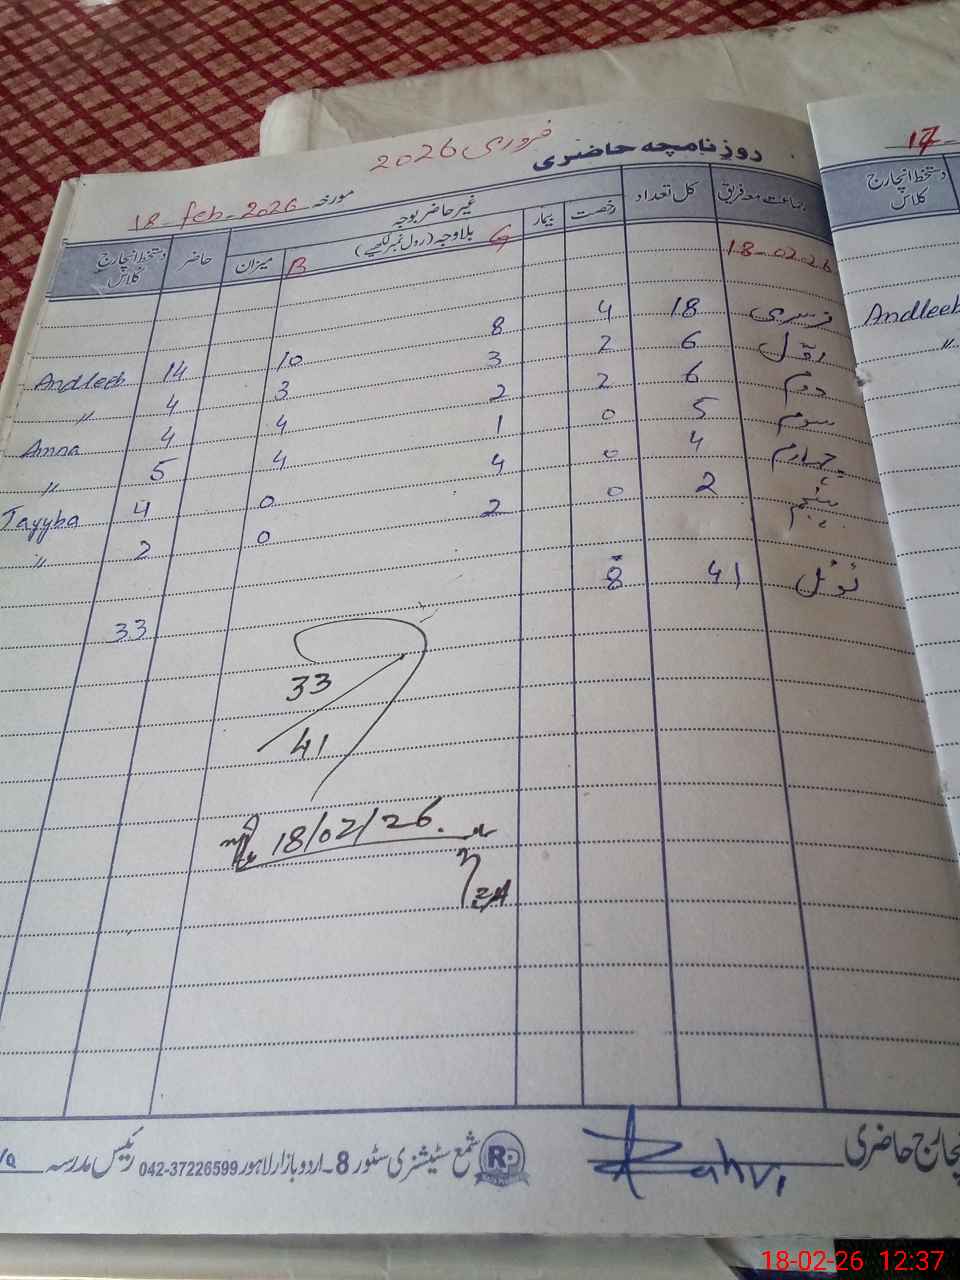 فروری 2026
روزنامچہ حاضری
مورخہ 18-feb-2026
جماعت معہ فریق کل تعداد رخصت بیمار غیر حاضر بوجہ حاضر دستخط انچارج کلاس
بلاوجہ (رول نمبر لکھیے) G B میزان
18-02-26
نرسری 18 4 8 10 14 Andleeb
اوّل 6 2 3 3 4 "
دوم 6 2 2 4 4 Amna
سوم 5 0 1 4 5 "
چہارم 4 0 4 0 4 Tayyba
پنجم 2 0 2 0 2 "
ٹوٹل 41 8 33
33
41
18/02/26
انچارج حاضری Rahvi
RP
شمع سٹیشنری سٹور 8۔اردو بازار لاہور 042-37226599
رئیس مدرسہ
17-
دستخط انچارج کلاس
Andleeb
"
18-02-26 12:37